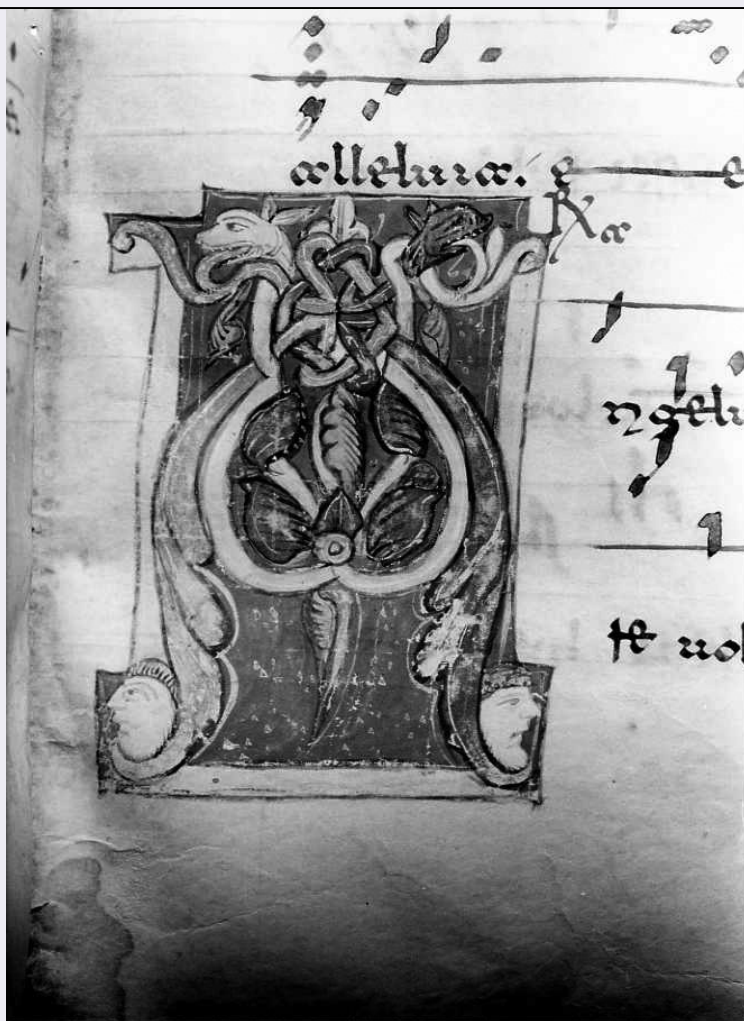 alleluia. e e
ngelu
te uo